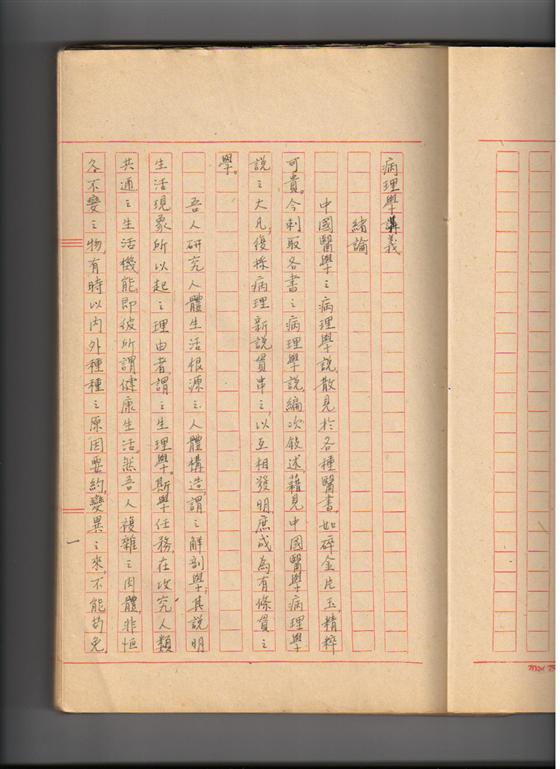 病理學講義
緒論
中國醫學之病理學說散見於各種醫書，如碎金片玉，精粹
可貴。今剌取各書之病理學說編次敘述藉見中國醫學病理學
說之大凡，復採病理新說貫串之，以互相發明庶成為有條貫之
學。
吾人研究人體生活根源之人體構造，謂之解剖學；其說明
生活現象所以起之理由者，謂之生理學。斯學任務，在攻究人類
共通之生活機能，即彼所謂健康生活。然吾人複雜之肉體，非恒
久不變之物，有時以內外種種之原因要約，變異之來，不能苟免
一